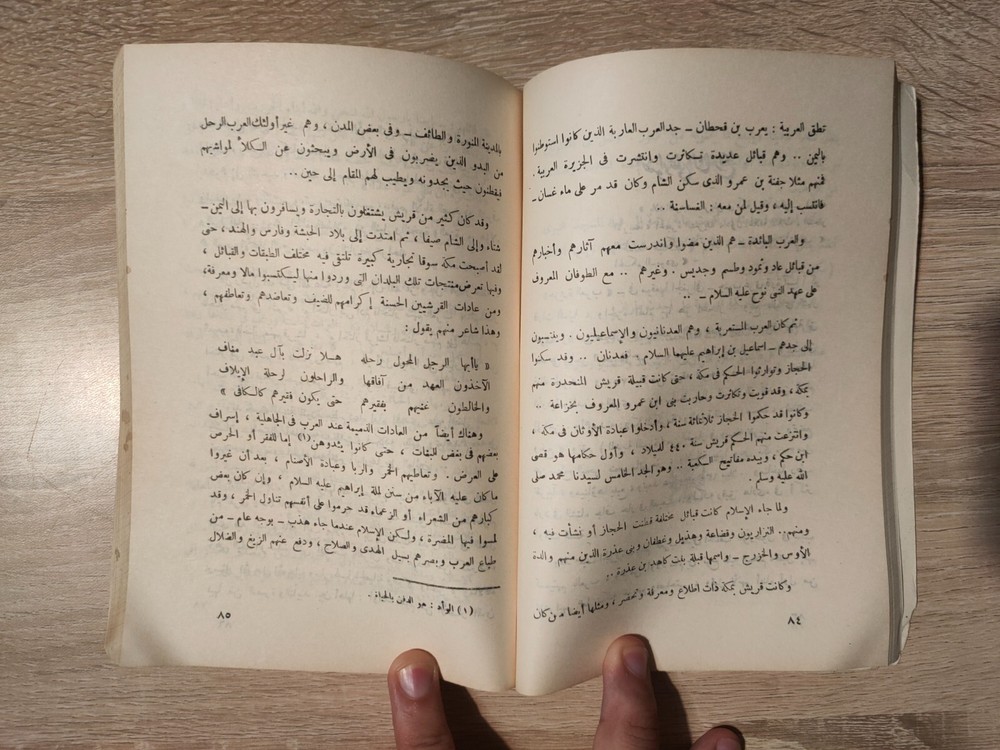 نطق العربية : يعرب بن قحطان – جد العرب العاربة الذين كانوا استوطنوا
باليمن .. وهم قبائل عديدة تسكاثرت وانتشرت فى الجزيرة العربية .
فمنهم مثلا جفنة بن عمرو الذى سكن الشام وكان قد مر على ماء غسان –
فانتسب إليه ، وقيل لمن معه : الغساسنة ..
والعرب البائدة – هم الذين مضوا واندرست معهم آثارهم وأخبارهم
من قبائل عاد وثمود وطسم وجديس . وغيرهم .. مع الطوفان المعروف
على عهد النبى نوح عليه السلام – ..
ثم كان العرب المستعربة ، وهم العدنانيون والإسماعيليون . وينتسبون
إلى جدهم – اسماعيل بن إبراهيم عليهما السلام . فعدنان .. وقد سكنوا
الحجاز وتوارثوا الحكم فى مكة ، حتى كانت قبيلة قريش المنحدرة منهم
بمكة ، وقد قويت وتكاثرت وحاربت بنى ابن عمرو المعروف بخزاعة ..
وكانوا قد حكموا الحجاز ثلاثمائة سنة ، وأدخلوا عبادة الأوثان فى مكة ،
وانتزعت منهم الحكم قريش سنة ٤٤٠ لفيلاد ، وأول حكامها هو قصى
ابن حكم ، وبيده مفاتيح السكعبة .. وهو الجد الخامس لسيدنا محمد صلى
الله عليه وسلم .
ولما جاء الإسلام كانت قبائل مختلفة قطنت الحجاز أو نشأت فيه ،
ومنهم .. النزاريون وقضاعة وهذيل وغطفان وبنى عذرة الذين منهم والدة
الأوس والخزرج – واسمها قيلة بنت كاهد بن عذرة ..
وكانت قريش بمكة ذات اطلاع ومعرفة وتحضر ، ومثلها أيضا من كان
٨٤
بالمدينة المنورة والطائف – وفى بعض المدن ، وهم غير أولئك العرب الرحل
من البدو الذين يضربون فى الأرض ويبحثون عن السكلأ لمواشيهم
فيقطنون حيث يجدونه ويطيب لهم المقام إلى حين ..
وقد كان كثير من قريش يشتغلون بالتجارة ويسافرون بها إلى اليمن –
شتاء وإلى الشام صيفا ، ثم امتدت إلى بلاد الحبشة وفارس والهند ، حتى
لقد أصبحت مكة سوقا تجارية كبيرة تلتقى فيه مختلف الطبقات والقبائل ،
وفيها تعرض منتجات تلك البلدان التى وردوا منها ليسكتسبوا مالا ومعرفة ،
ومن عادات القرشيين الحسنة إكرامهم للضيف وتعاضدهم وتعاطفهم ،
وهذا شاعر منهم يقول :
« ياأيها الرجل المحول رحله هلا نزلت بآل عبد مناف
الآخذون العهد من آفاقها والراحلون لرحلة الإيلاف
والخالطون غنيهم بفقيرهم حتى يكون فقيرهم كالسكافى »
وهناك أيضاً من العادات الذميمة عند العرب فى الجاهلية ، إسراف
بعضهم فى بغض البنات ، حتى كانوا يئدوهن (١) إما للفقر أو الحرص
على العرض . وتعاطيهم الخمر والربا وعبادة الأصنام ، بعد أن غيروا
ما كان عليه الآباء من سنن لملة إبراهيم عليه السلام ، وإن كان بعض
كبارهم من الشعراء أو الزعماء قد حرموا على أنفسهم تناول الخمر ، وقد
لمسوا فيها المضرة ، ولسكن الإسلام عندما جاء هذب – بوجه عام – من
طباع العرب وبصرهم بسبل الهدى والصلاح ، ودفع عنهم الزيغ والضلال
(١) الوأد : هو الدفن بالحياة .
٨٥